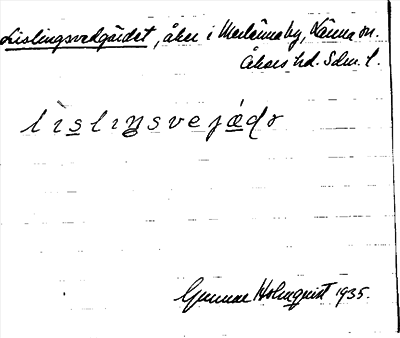 Lislingsvedgärdet, åker i Merlännaby, Länna sn.
Åkers hd. Sdm. l.
lislıŋsvejæ̀dr
Gunnar Holmquist 1935.